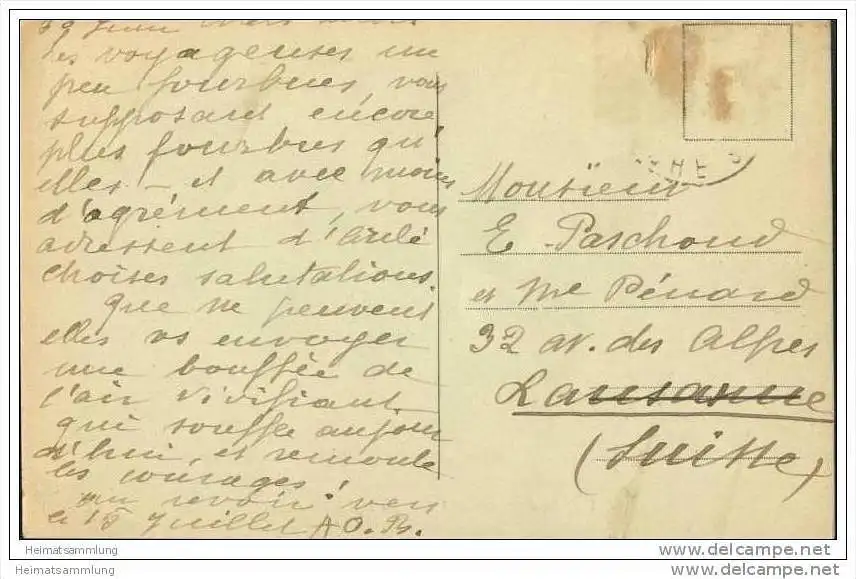 les voyageuses un
peu fourbues, vous
supposant encore
plus fourbus qu'
elles - et avec moins
d'agrément, vous
adressent d'
choises salutations.
que ne peuvent
elles vs envoyer
une bouffée de
l'air vivifiant
qui souffle aujour
d'hui, et remonte
les courages!
au revoir vers
le 15 Juillet A O. B.
HE
Monsieur
E. Paschoud
et Me Pénard
32 av. des Alpes
Lausanne
(Suisse)
Heimatsammlung
Heimatsammlung
www.delcampe.net
www.delcampe.net